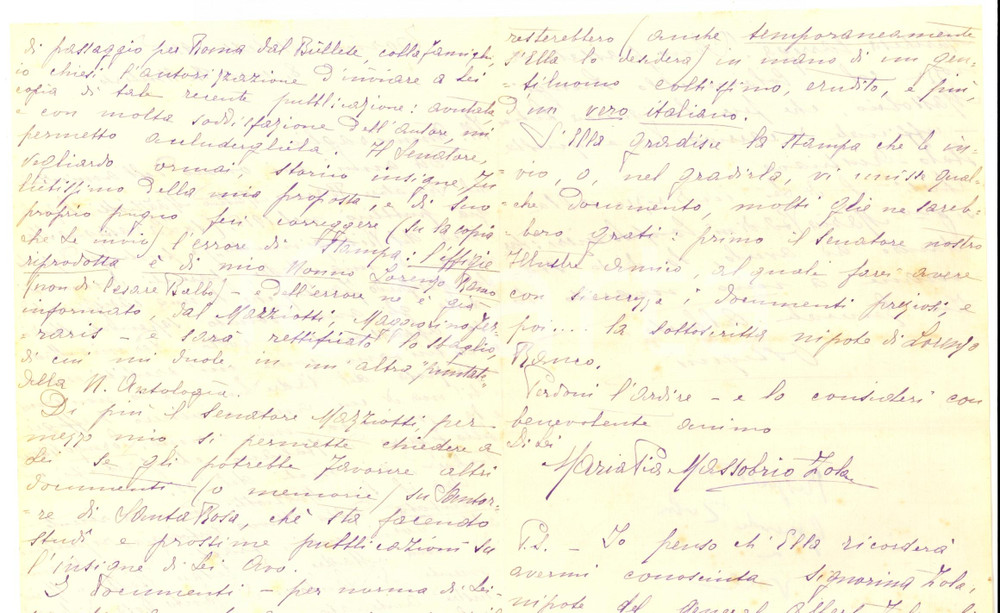 di passaggio per Roma dal Bullete, colla famiglia,
io chiesi l'autorizzazione d'inviare a Lei
copia di tale recente pubblicazione: avutala
con molta soddisfazione dell'autore, mi
permetto Il Senatore,
ormai, storico insigne, fu
lietissimo della mia proposta, e di suo
proprio pugno feci correggere (su la copia
che Le invio) l'errore di stampa: l'effigie
riprodotta è di mio Nonno Lorenzo Ranco
(non di Cesare Balbo) - e dell'errore ne è già
informato, dal Mazziotti, Maggiorino Fer
=raris - e sarà rettificato lo sbaglio,
di cui mi duole in un'altra puntata
della N. Antologia.
Di più il Senatore Mazziotti, per
mezzo mio, si permette chiedere a
Lei se gli potrebbe favorire altri
documenti (o memorie) su Santor-
=re di Santa Rosa, chè sta facendo
studi e prossime pubblicazioni su
l'insigne di Lei Avo.
I documenti - per norma di Lei -
resterebbero (anche temporaneamente
s'Ella lo desidera) in mano di un gen-
=tiluomo coltissimo, erudito, e più,
d'un vero italiano.
S'Ella gradisce la stampa che le in-
vio, o, nel gradirla, vi unisse qual-
=che documento, molti glie ne sareb-
=bero grati: primo il Senatore nostro
Illustre amico, al quale farei avere
con sicurezza i documenti preziosi, e
poi.... la sottoscritta nipote di Lorenzo
Ranco.
Perdoni l'ardire - e lo consideri con
benevolente animo
Di Lei
Maria Pia Massobrio Zola
P.S. - Io penso ch'Ella ricorderà
avermi conosciuta signorina Zola,
nipote del general